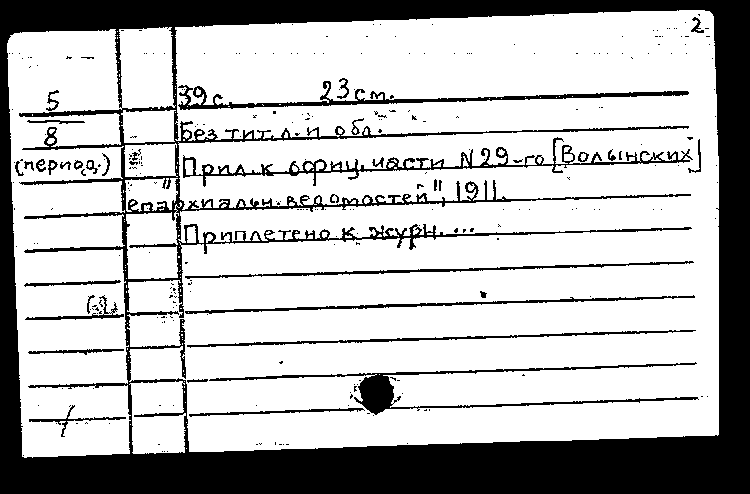 2
39 с. 23 см.
5
8
Без тит. л. и обл.
(период.)
Прил. к офиц. части N 29-го [Волынских]
"епархиальн. ведомостей", 1911.
Приплетено к журн. ...